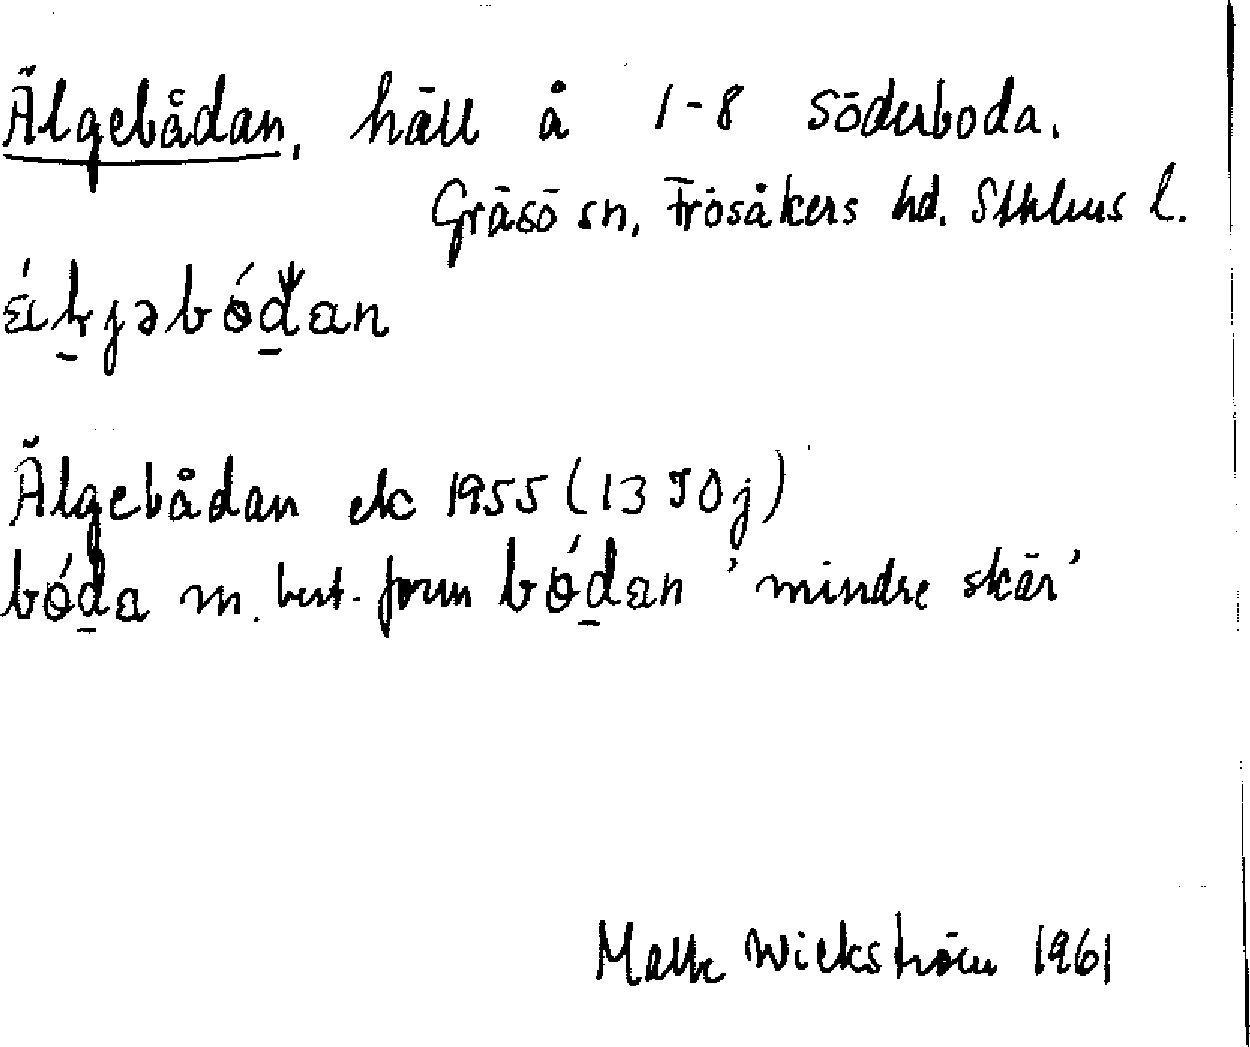 Älgebådan, häll å 1-8 Söderboda.
Gräsö sn, Frösåkers hd. Sthlms l.
Älgebådan ek 1955 (13 I 0 j)
bóda m. best. form bódan 'mindre skär'
Malte Wickström 1961